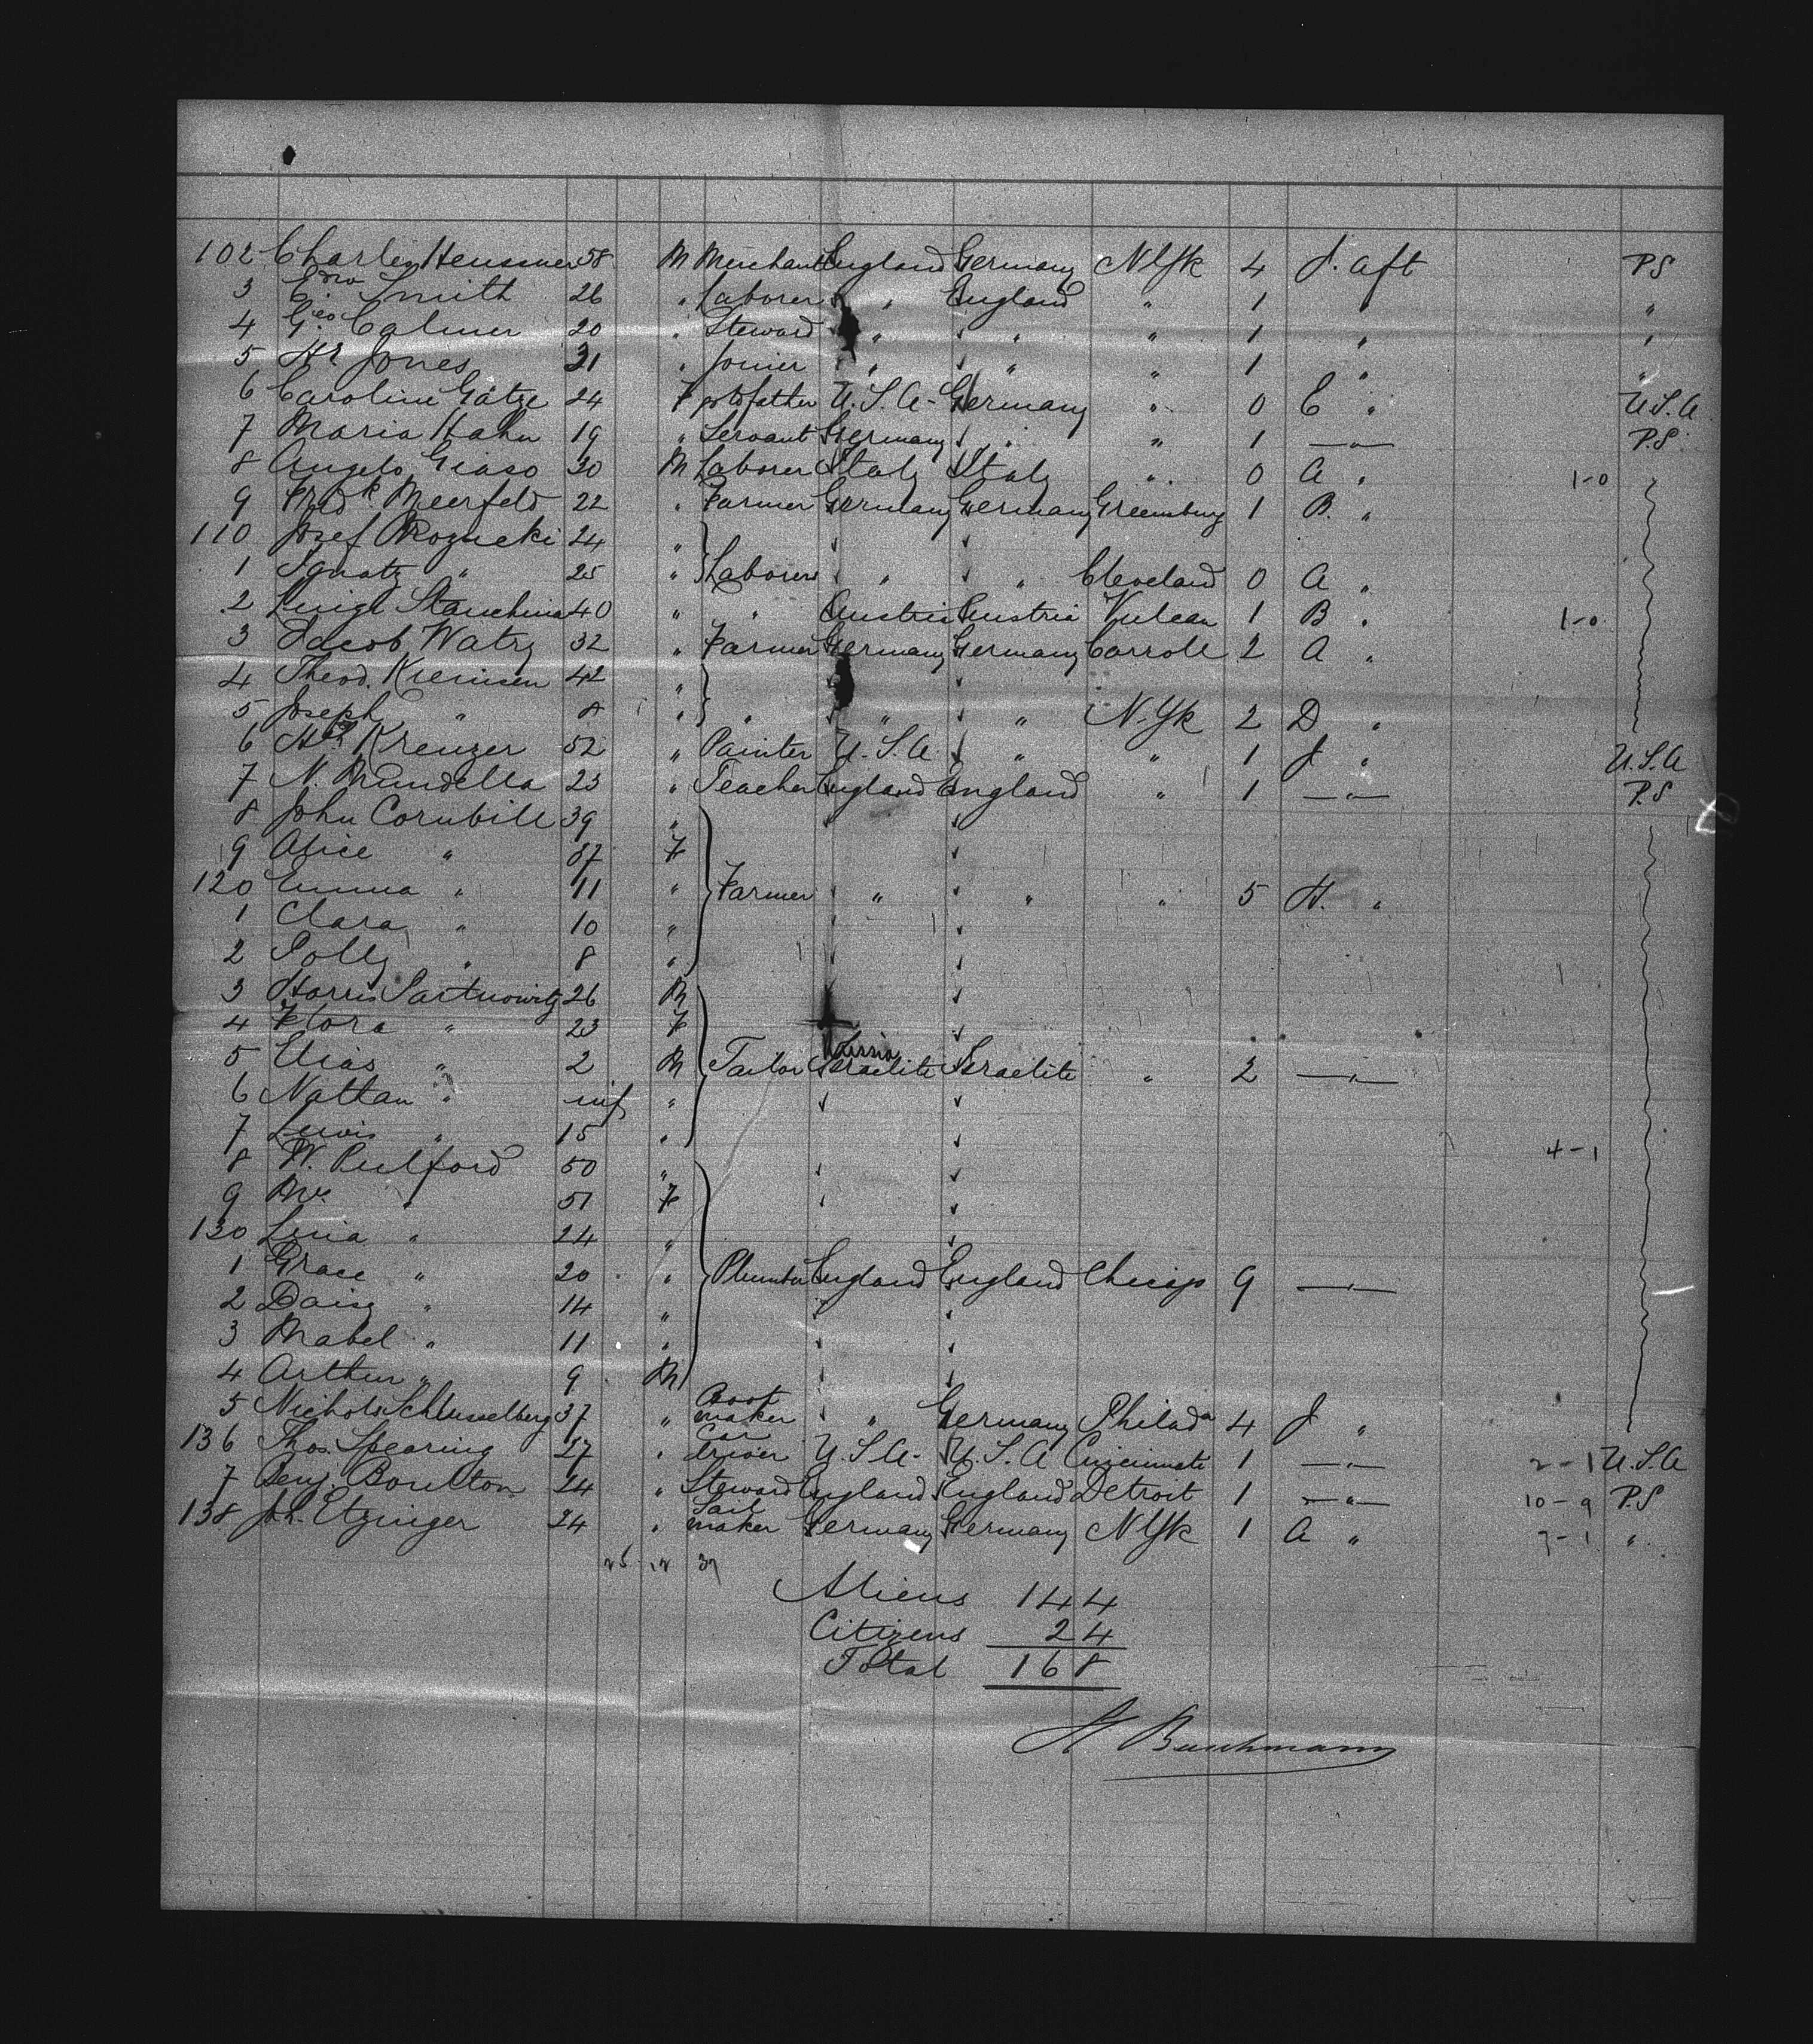 102 Charles Heussner 58 M Merchant England Germany N Yk 4 J. aft P.S
3 Edw Smith 26 " Laborer " England " 1 " "
4 Geo Calmer 20 " Steward " " " 1 " "
5 Hy Jones 31 " Joiner " " " 1 " "
6 Caroline Gätze 24 F U.S.A. Germany " 0 E " U.S.A
7 Maria Hahn 19 " Servant Germany " " 1 — " — P.S
8 Angelo Giaso 30 M Laborer Italy Italy " 0 A " 1-0
9 Fredk Meerfeld 22 " Farmer Germany Germany Greensburg 1 B. "
110 Josef Rozncki 24 "
1 Ignatz " 25 " Laborers " " Cleveland 0 A "
2 Luigi Stanchina 40 " " Austria Austria Vulcan 1 B " 1-0
3 Jacob Watry 32 " Farmer Germany Germany Carroll 2 A "
4 Theod. Kremsen 42 "
5 Joseph " 8 " " " " N. Yk 2 D "
6 Kreuzer 52 " Painter U.S.A " " 1 J " U.S.A
7 N. Mundella 23 " Teacher England England " 1 — " — P.S
8 John Cornbill 39 "
9 Alice " 37 F
120 Emma " 11 " Farmer " " " 5 H. "
1 Clara " 10 "
2 Polly " 8 "
3 Harris Sartnowitz 26 M
4 Flora " 23 F
5 Elias " 2 M Tailor Russia Israelite Israelite " 2 — " —
6 Nathan " inf "
7 Lewis " 15 "
8 W. Pulford 50 " 4-1
9 Mrs " 51 F
130 Lina " 24 "
1 Grace " 20 " Plumber England England Chicago 9 — " —
2 Daisy " 14 "
3 Mabel " 11 "
4 Arthur " 9 M
5 Nichols Schlusselberg 37 " Boot maker " Germany Philada 4 J "
136 Thos. Spearing 27 " Car driver U.S.A. U.S.A Cincinnati 1 — " — 2-1 U.S.A
7 Benj. Boulton 24 " Steward England England Detroit 1 — " — 10-9 P.S
138 Joh. Etzinger 24 " Sail maker Germany Germany N Yk 1 A " 7-1 "
25 12 37
Aliens 144
Citizens 24
Total 168
H Buschmann